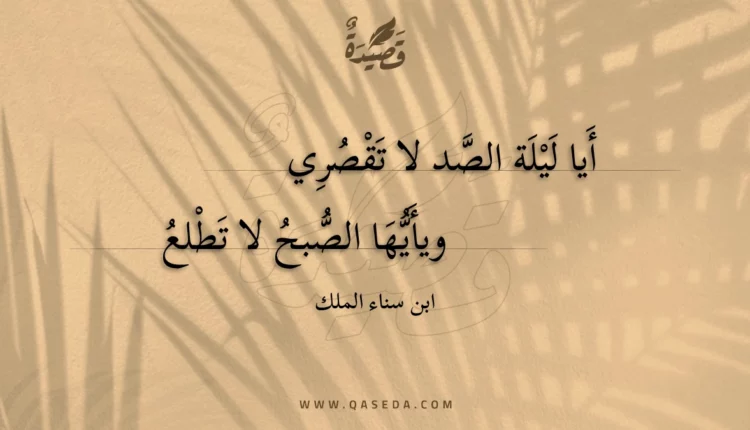 قَصِيْدَةٌ
أَيا لَيْلَة الصَّد لا تَقْصُرِي
ويأَيُّهَا الصُّبحُ لا تَطْلعُ
ابن سناء الملك
WWW.QASEDA.COM